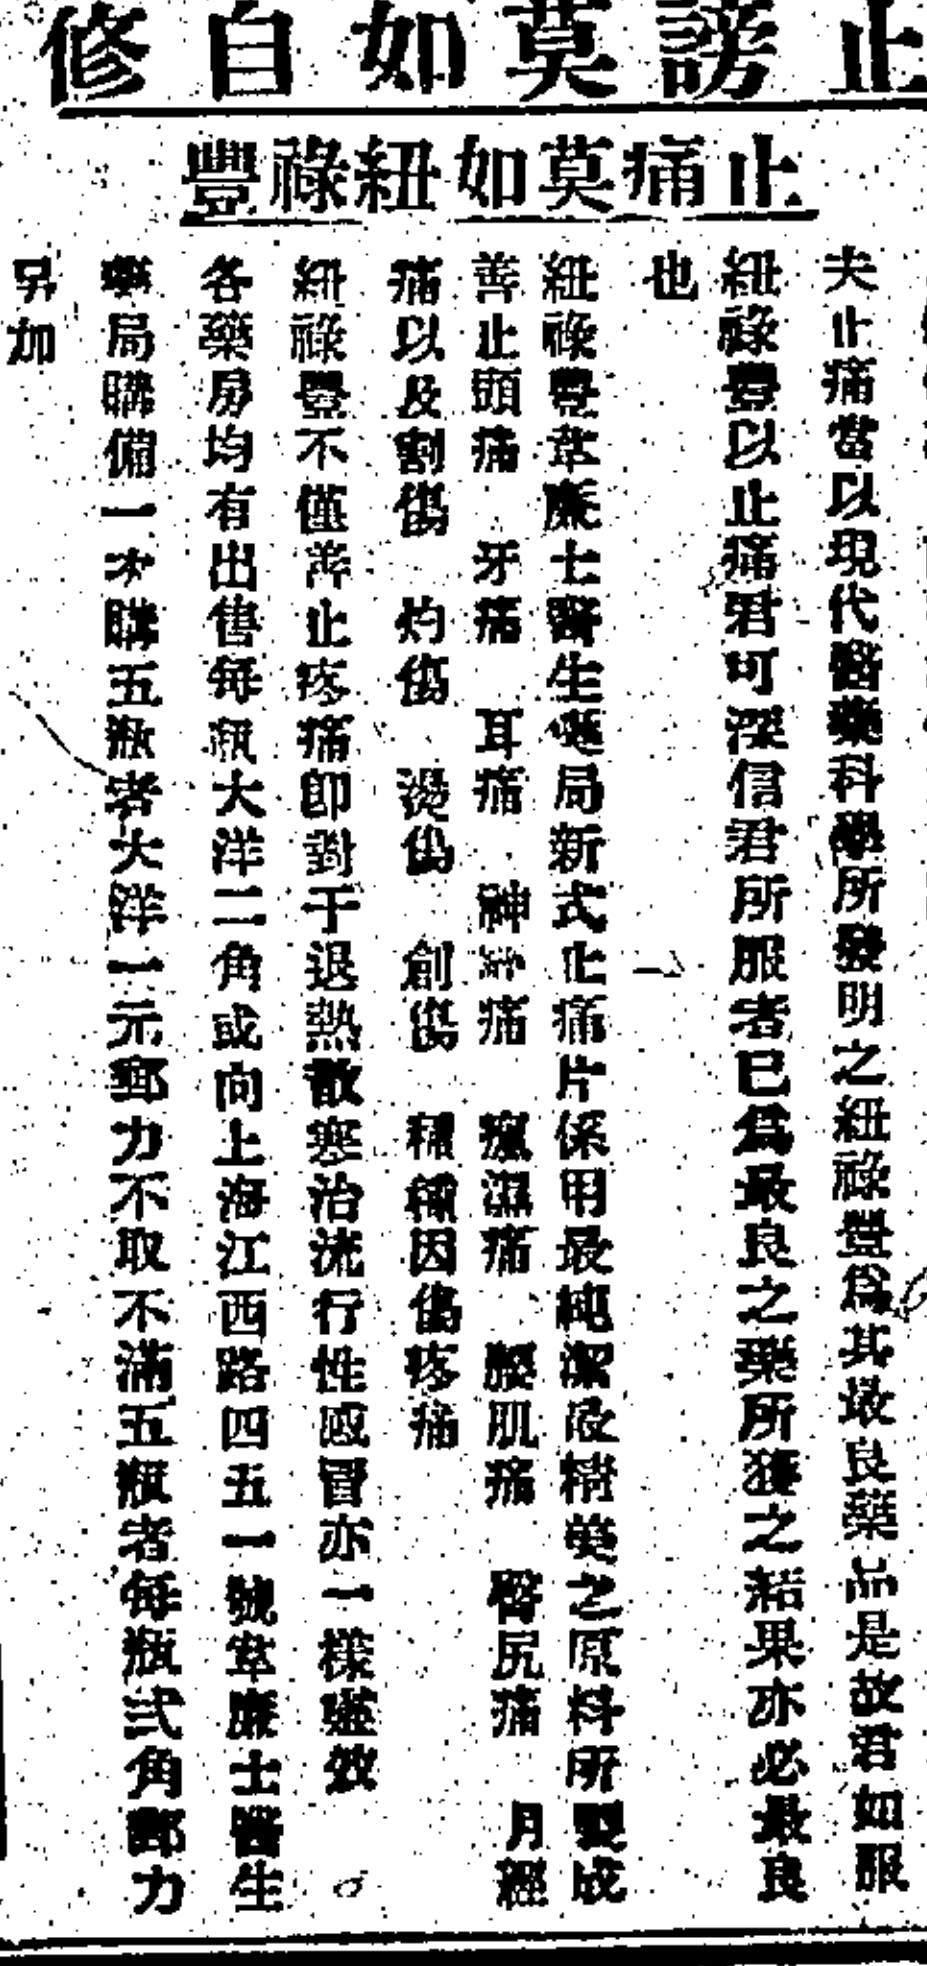 止謗莫如自修
止痛莫如紐祿豐
夫止痛當以現代醫藥科學所發明之紐祿豐爲其最良藥品是故君如服
紐祿豐以止痛君可深信君所服者已爲最良之藥所獲之結果亦必最良
也
紐祿豐韋廉士醫生藥局新式止痛片係用最純潔及精美之原料所製成
善止頭痛 牙痛 耳痛 神經痛 瘋濕痛 腰肌痛 臀尻痛 月經
痛以及割傷 灼傷 燙傷 創傷 種種因傷疼痛
紐祿豐不僅善止疼痛卽對于退熱散寒治流行性感冒亦一樣靈效
各藥房均有出售每瓶大洋二角或向上海江西路四五一號韋廉士醫生
藥局購備一次購五瓶者大洋一元郵力不取不滿五瓶者每瓶弍角郵力
另加